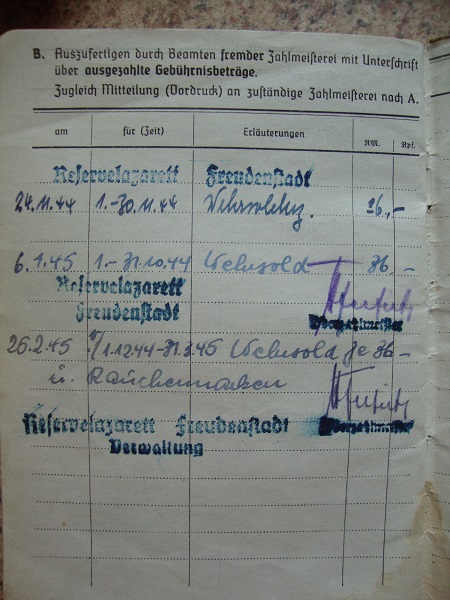 B. Auszufertigen durch Beamten fremder Zahlmeisterei mit Unterschrift
über ausgezahlte Gebührnisbeträge.
Zugleich Mitteilung (Vordruck) an zuständige Zahlmeisterei nach A.
am für (Zeit) Erläuterungen RM. Rpf.
Reservelazarett Freudenstadt
24.11.44 1.-30.11.44 36,-
6.1.45 1.-31.10.44 Wehrsold 36 -
Reservelazarett
Freudenstadt
Oberzahlmeister
26.2.45 1.12.44-31.3.45 Wehrsold je 36-
u. Rauchermarken
Reservelazarett Freudenstadt Oberzahlmeister
Verwaltung